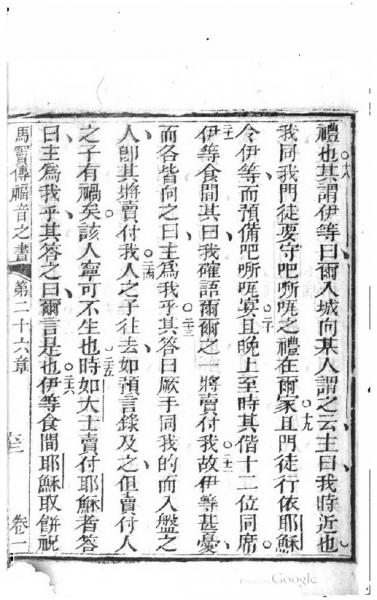 禮也○十八其謂伊等曰爾入城向某人謂之云主曰我時近也
我同我門徒要守吧𠸄咓之禮在爾家且○十九門徒行依耶穌
令伊等而預備吧𠸄咓宴○二十且晚上至時其偕十二位同席
○二十一伊等食間其曰我確語爾爾之一將賣付我○二十二故伊等甚憂
而各皆向之曰主為我乎○二十三其答曰厥手同我的而入盤之
人卽其將賣付我○二十四人之子徃去如預言錄及之但賣付人
之子有禍矣該人寧可不生也○二十五時如大士賣付耶穌者答
曰主為我乎其答之曰爾言是也○二十六伊等食間耶穌取餅祝
馬竇傳福音之書 第二十六章 卷一
Google